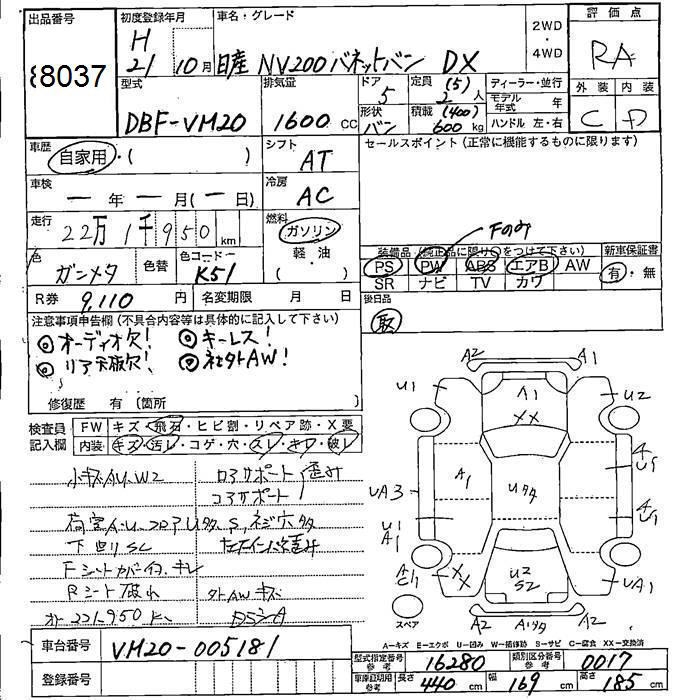 出品番号 88037
初度登録年月 H 21 10月
車名・グレード 日産 NV200 バネットバン DX
2WD ・ 4WD
評価点 RA
外装 C 内装 D
型式 DBF-VM20
排気量 1600 CC
ドア 5
形状 バン
定員 (5) 2人
積載 (400) 600 kg
ディーラー・並行
モデル年式 年
ハンドル 左・右
車歴 自家用・( )
シフト AT
セールスポイント (正常に機能するものに限ります)
車検 ー年ー月(ー日)
冷房 AC
走行 22万1千950 km
燃料 ガソリン・軽油・( )
Fのみ
色 ガンメタ 色替 色コードー K51
装備品 (純正品に限り○をつけて下さい)
PS PW ABS エアB AW
SR ナビ TV カワ
新車保証書 有・無
R券 9,110 円 名変期限 月 日
後日品 取
注意事項申告欄 (不具合内容等は具体的に記入して下さい)
◎オーディオ欠! ◎キーレス!
◎リア天版欠! ◎社外AW!
修復歴 有 (箇所 )
検査員記入欄 FW キズ・飛石・ヒビ割・リペア跡・X要
内装 キズ・汚レ・コゲ・穴・スレ・キレ・破レ
小キズA.U.W2 コアサポート歪み
コアサポート
荷室A.U. フロアUタタ S, ネジ穴多
下回りSC
Fシートカバー付、キレ
Rシート破れ 外AWキズ
オー 221,950 k
車台番号 VM20-005181
登録番号
A2 A1
U1 U2
A1
XX
A1
Uタタ
UA3
U1
A1
XX
U2
S2
UA1
スペア
A2 A1タタ A2
A-キズ E-エクボ U-凹み W-補修跡 S-サビ C-腐食 XX-交換済
型式指定番号 参考 16280 類別区分番号 参考 0017
車庫証明用 参考 長さ 440 cm 幅 169 cm 高さ 185 cm